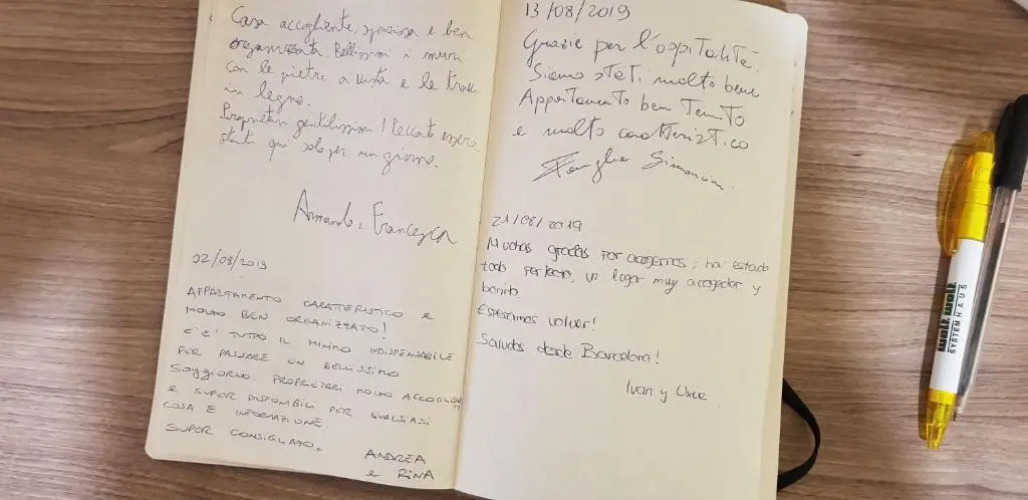 Casa accogliente, spaziosa e ben
organizzata. Bellissimi i muri
con le pietre a vista e le travi
in legno.
Proprietari gentilissimi! Peccato essere
stati qui solo per un giorno.
Armando e Francesca
02/08/2019
APPARTAMENTO CARATTERISTICO E
MOLTO BEN ORGANIZZATO!
C'E' TUTTO IL MINIMO INDISPENSABILE
PER PASSARE UN BELLISSIMO
SOGGIORNO. PROPRIETARI MOLTO ACCOGLIENTI
E SUPER DISPONIBILI PER QUALSIASI
COSA E INFORMAZIONE.
SUPER CONSIGLIATO.
ANDREA
e RINA
13/08/2019
Grazie per l'ospitalità.
Siamo stati molto bene
Appartamento ben Tenuto
e molto caratteristico
Famiglia
21/08/2019
Muchas gracias por acogernos; ha estado
todo perfecto, un lugar muy acogedor y
bonito
Esperamos volver!
Saludos desde Barcelona!
Ivan y
well.well
SYSTEMHAUS